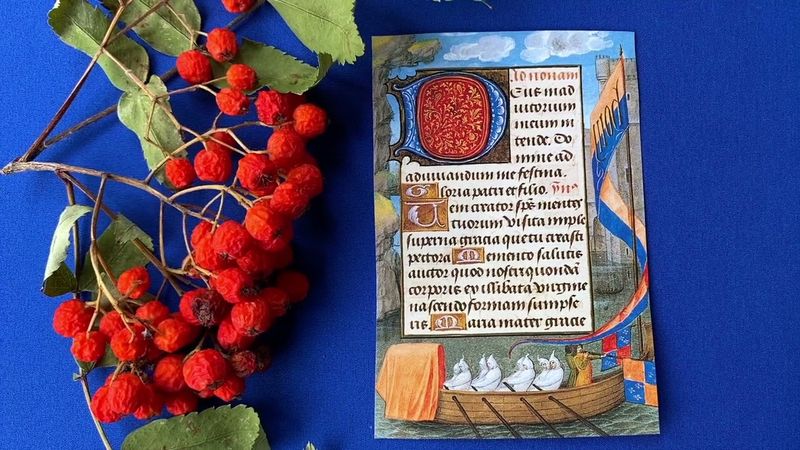 Ad nonam
Deus in ad
iutorium
meum in
tende. Do
mine ad
adiuuandum me festina.
Gloria patri et filio.
Ueni creator sp̄s mentes
tuorum visita imple
superna gracia que tu creasti
pectora Memento salutis
auctor quod nostri quondā
corporis ex illibata virgine
nascendo formam sumpse
ris. Maria mater gracie